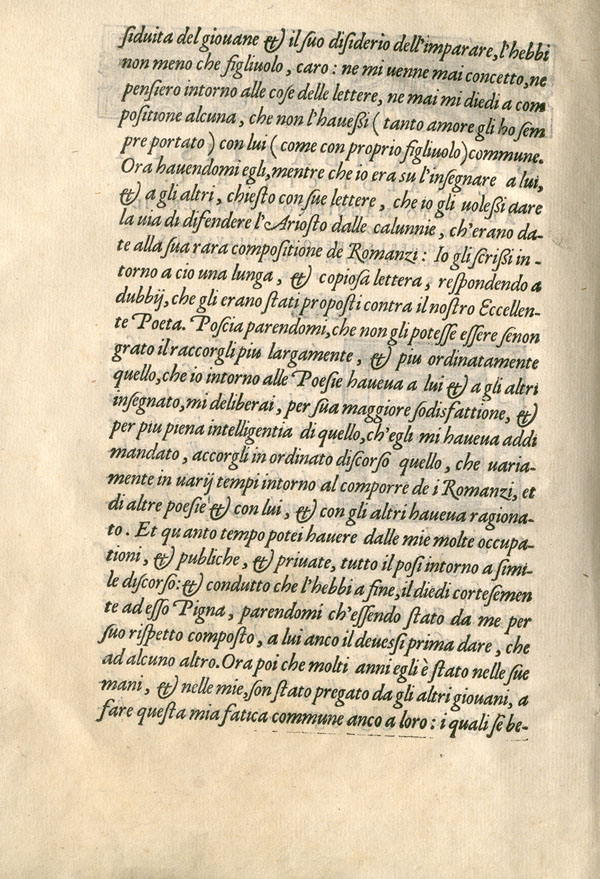 ſiduita del giouane & il ſuo diſiderio dell'imparare, l'hebbi
non meno che figliuolo, caro: ne mi uenne mai concetto, ne
penſiero intorno alle coſe delle lettere, ne mai mi diedi a com
poſitione alcuna, che non l'haueßi (tanto amore gli ho ſem
pre portato) con lui (come con proprio figliuolo) commune.
Ora hauendomi egli, mentre che io era su l'inſegnare a lui,
& a gli altri, chieſto con ſue lettere, che io gli uoleßi dare
la uia di difendere l'Arioſto dalle calunnie, ch'erano da-
te alla ſua rara compoſitione de Romanzi: Io gli ſcrißi in-
torno a cio una lunga, & copioſa lettera, reſpondendo a
dubbij, che gli erano ſtati propoſti contra il noſtro Eccellen-
te Poeta. Poſcia parendomi, che non gli poteſſe eſſere ſenon
grato il raccorgli piu largamente, & piu ordinatamente
quello, che io intorno alle Poeſie haueua a lui & a gli altri
inſegnato, mi deliberai, per ſua maggiore ſodisfattione, &
per piu piena intelligentia di quello, ch'egli mi haueua addi
mandato, accorgli in ordinato diſcorſo quello, che uaria-
mente in uarij tempi intorno al comporre de i Romanzi, et
di altre poeſie & con lui, & con gli altri haueua ragiona-
to. Et quanto tempo potei hauere dalle mie molte occupa-
tioni, & publiche, & priuate, tutto il poſi intorno a ſimi-
le diſcorſo: & condutto che l'hebbi a fine, il diedi corteſemen
te ad eſſo Pigna, parendomi ch'eſſendo ſtato da me per
ſuo riſpetto compoſto, a lui anco il deueſſi prima dare, che
ad alcuno altro. Ora poi che molti anni egli è ſtato nelle ſue
mani, & nelle mie, ſon ſtato pregato da gli altri giouani, a
fare queſta mia fatica commune anco a loro: i quali ſè be-